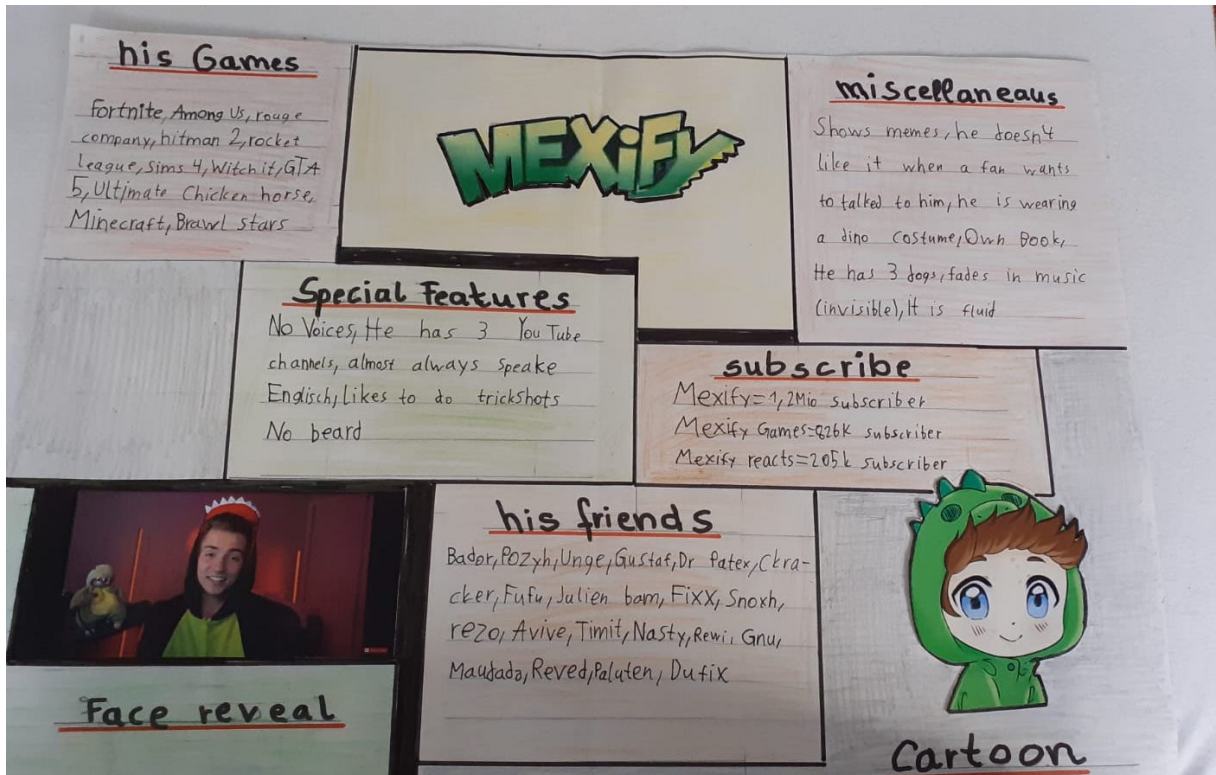 his Games
Fortnite, Among Us, rouge
company, hitman 2, rocket
league, Sims 4, Witch it, GTA
5, Ultimate Chicken horse,
Minecraft, Brawl stars
MEXiFY
miscellaneaus
Shows memes, he doesn4
like it when a fan wants
to talked to him, he is wearing
a dino costume, Own Book,
He has 3 dogs, fades in music
(invisible), It is fluid
Special Features
No Voices, He has 3 YouTube
channels, almost always speake
Englisch, Likes to do trickshots
No beard
subscribe
Mexify=1,2Mio subscriber
Mexify Games=826k subscriber
Mexify reacts=205k subscriber
his friends
Bador, POZyh, Unge, Gustaf, Dr Patex, Ckra-
cker, Fufu, Julien bam, Fixx, Snoxh,
rezo, Avive, Timit, Nasty, Rewi, Gnu,
Maudado, Reved, Paluten, Dufix
Face reveal
Cartoon